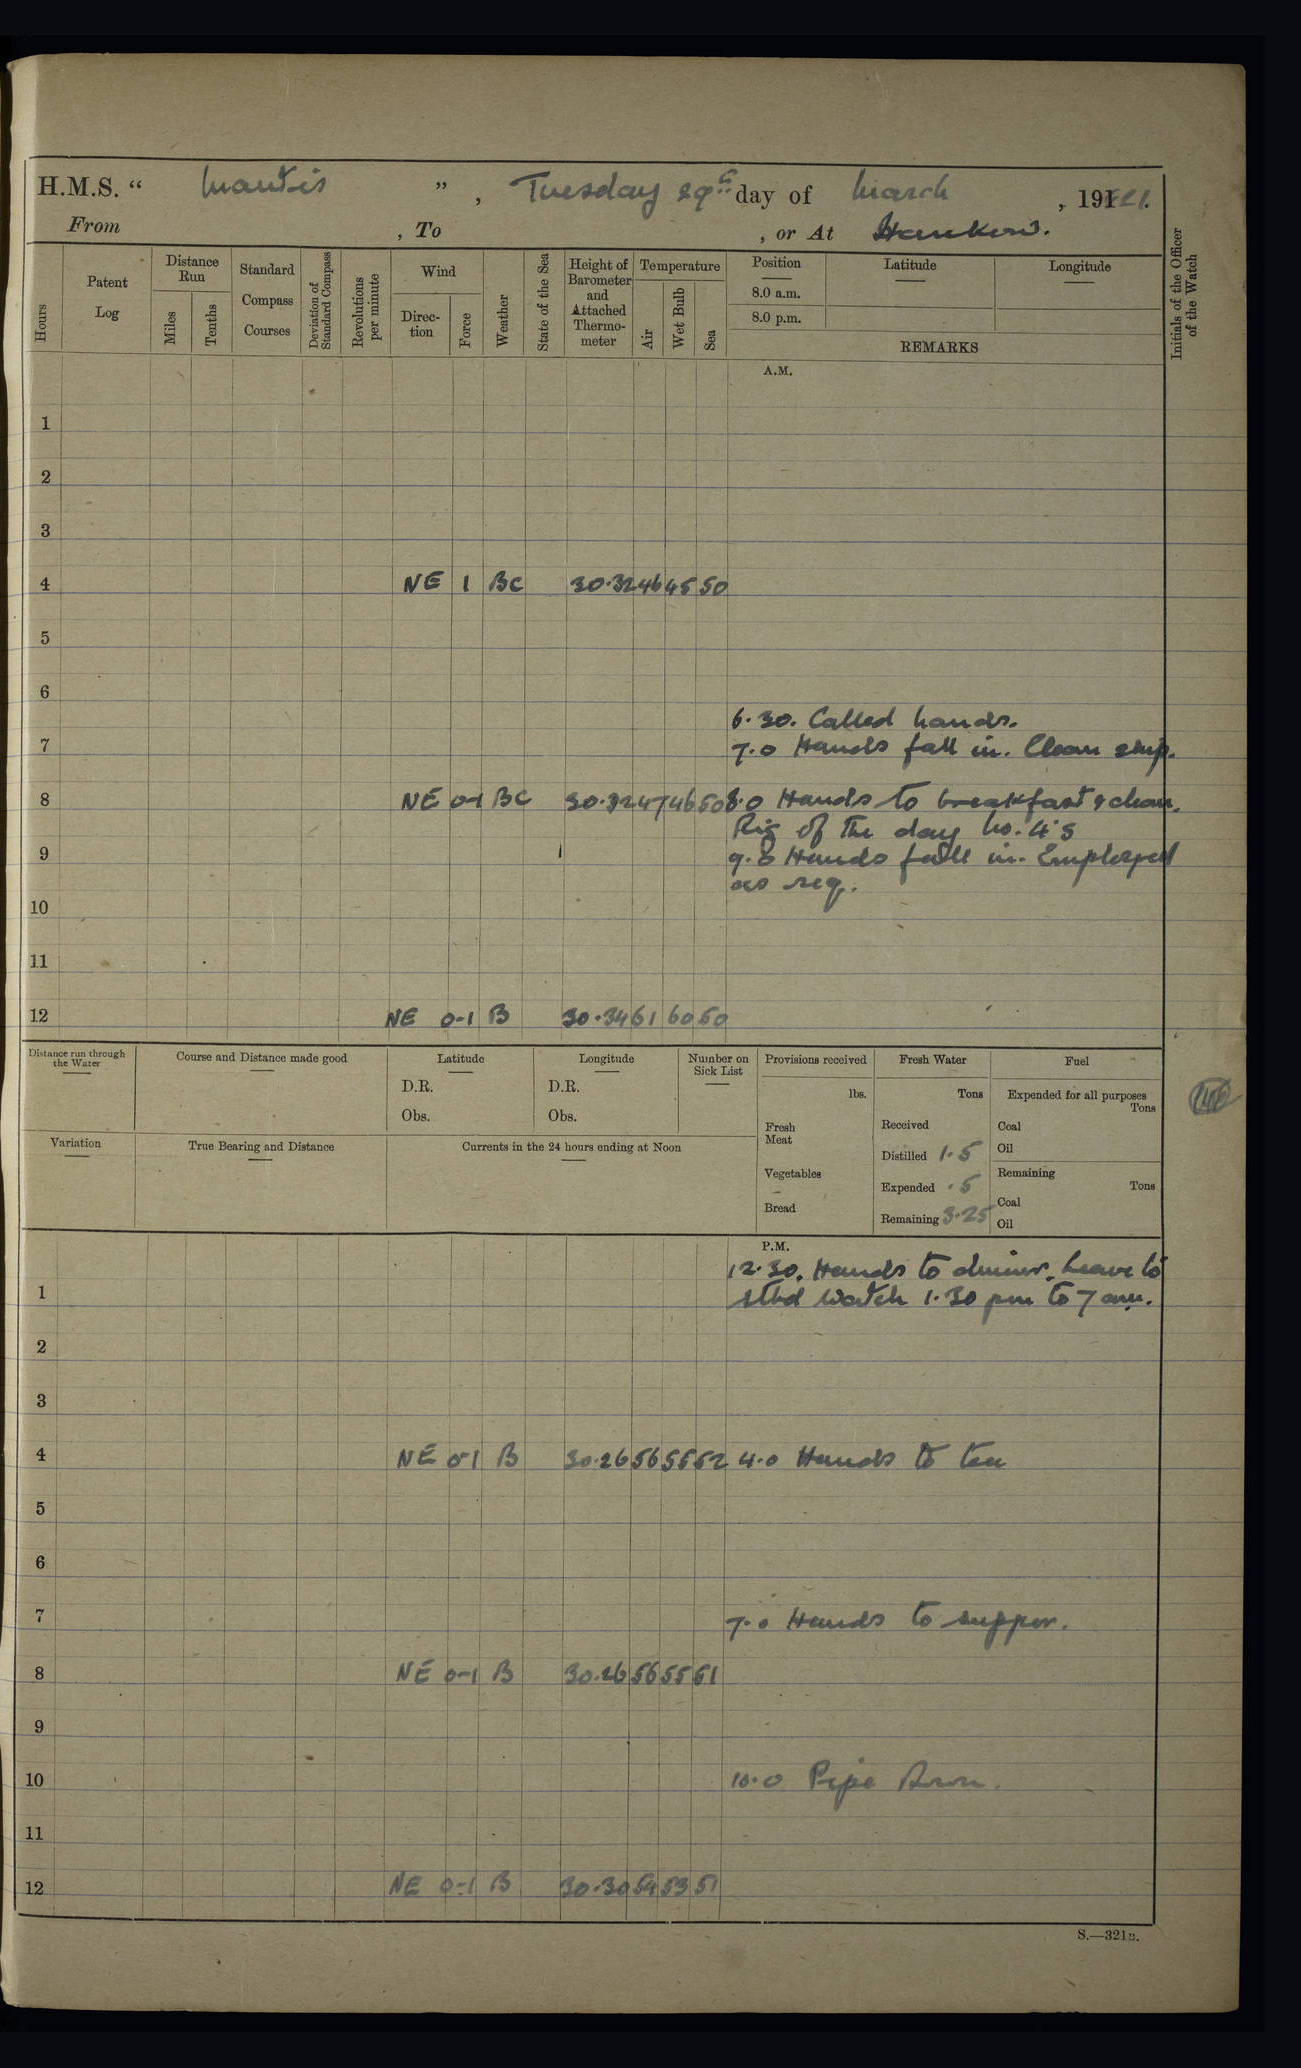 H.M.S. “ Mantis ”, Tuesday 29th day of March, 1921.
From , To , or At Hankow.
Hours
Patent Log
Distance Run
Miles
Tenths
Standard Compass Courses
Deviation of Standard Compass
Revolutions per minute
Wind
Direction
Force
Weather
State of the Sea
Height of Barometer and Attached Thermometer
Temperature
Air
Wet Bulb
Sea
Position
8.0 a.m.
8.0 p.m.
Latitude
Longitude
REMARKS
Initials of the Officer of the Watch
A.M.
1
2
3
4 NE 1 BC 30.32 46 45 50
5
6
6.30. Called hands.
7 7.0 Hands fall in. Clean ship.
8 NE 0-1 BC 30.32 47 46 50 8.0 Hands to breakfast & clean.
Rig of the day No. 4's
9 9.0 Hands fall in. Employed
as req.
10
11
12 NE 0-1 B 30.34 61 60 50
Distance run through the Water
Course and Distance made good
Latitude
D.R.
Obs.
Longitude
D.R.
Obs.
Number on Sick List
Provisions received
lbs.
Fresh Meat
Vegetables
Bread
Fresh Water
Tons
Received
Distilled 1.5
Expended .5
Remaining 3.25
Fuel
Expended for all purposes
Tons
Coal
Oil
Remaining
Tons
Coal
Oil
Variation
True Bearing and Distance
Currents in the 24 hours ending at Noon
P.M.
12.30. Hands to dinner. Leave to
1 stbd watch 1.30 pm to 7 am.
2
3
4 NE 0-1 B 30.26 56 55 52 4.0 Hands to tea
5
6
7 7.0 Hands to supper.
8 NE 0-1 B 30.26 56 55 51
9
10 10.0 Pipe down.
11
12 NE 0-1 B 30.30 54 53 51
S.—321B.